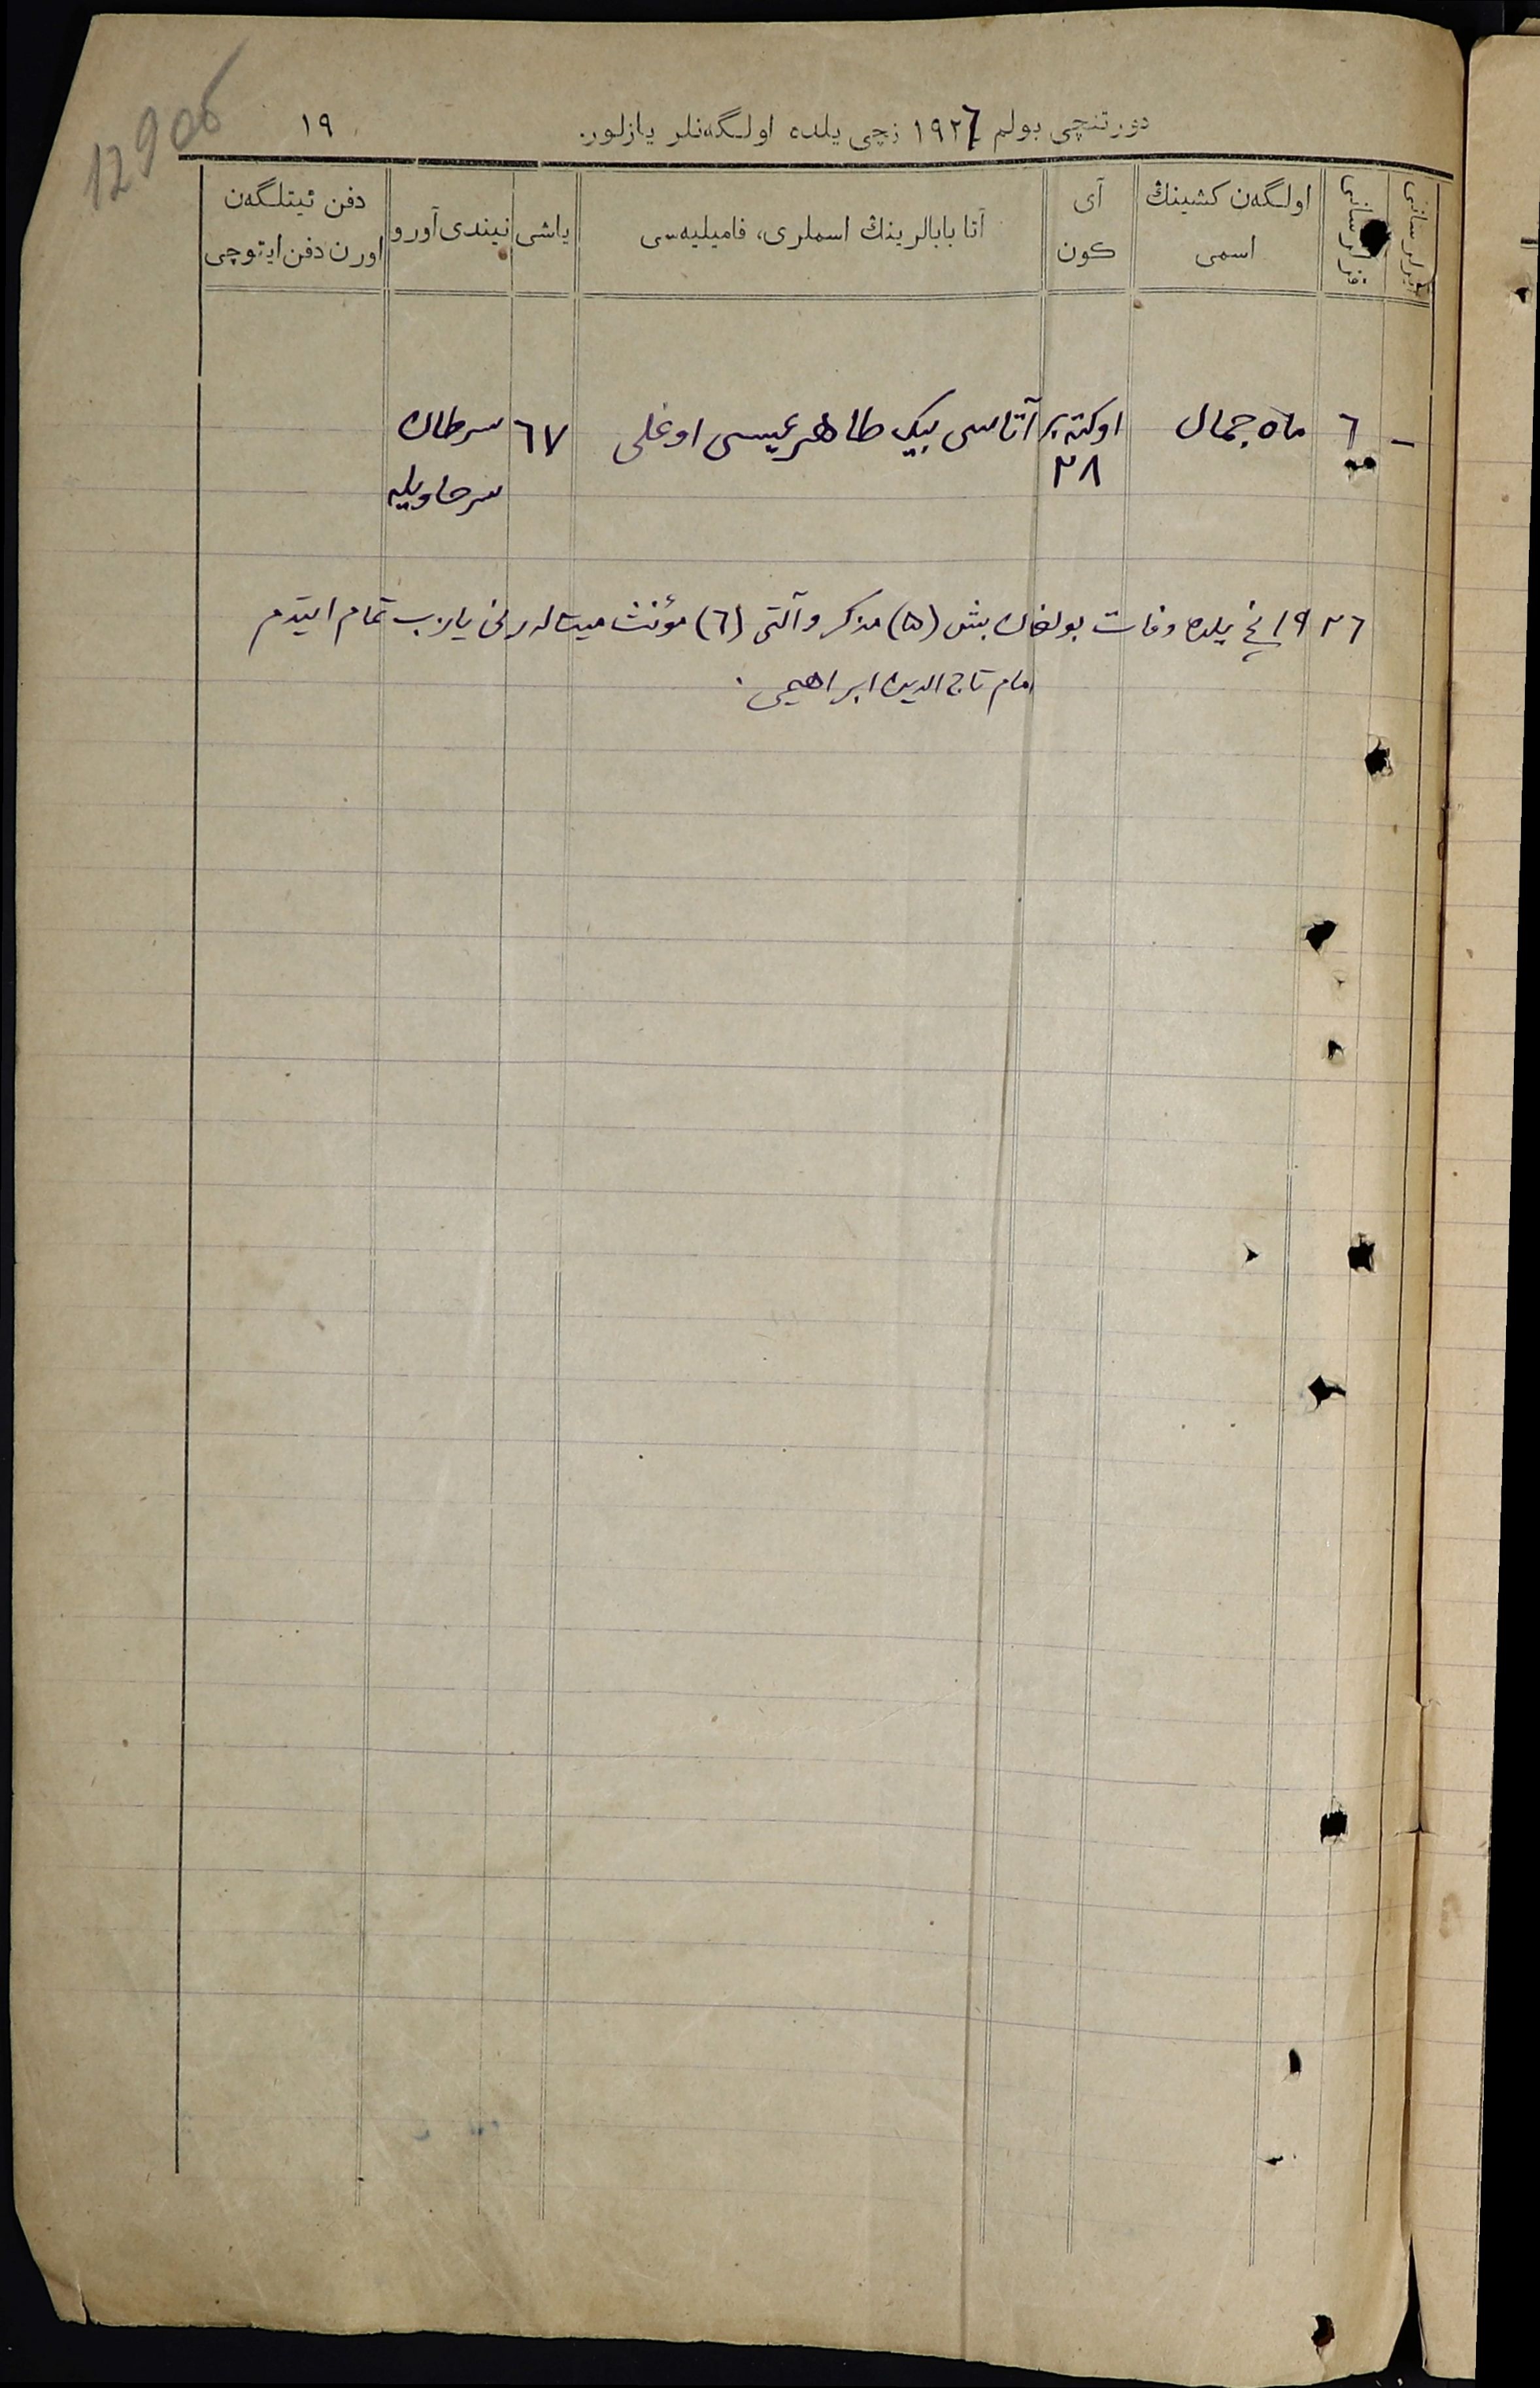 12906
١٩
دورتنچی بولم ١٩٢٦ نچی یلده اولگەنلر یازلور.
ایرلر سانی
قزلر سانی
اولگەن كشینڭ اسمی
آی كون
آتا بابالرینڭ اسملری، فامیلیەسی
یاشی
نیندی آورو
دفن ئیتلگەن اورن دفن ایتوچی
– ٦ ماه جمال اوكتەبر آتاسی بیك طاهر عیسی اوغلی ٦٧ سرطان
٢٨
١٩٢٦ نچی یلده وفات بولغان بش (٥) مذكر و آلتی (٦) مؤنث میت لەرنی یازب تمام ایتدم
امام تاج الدین ابراهیمی.